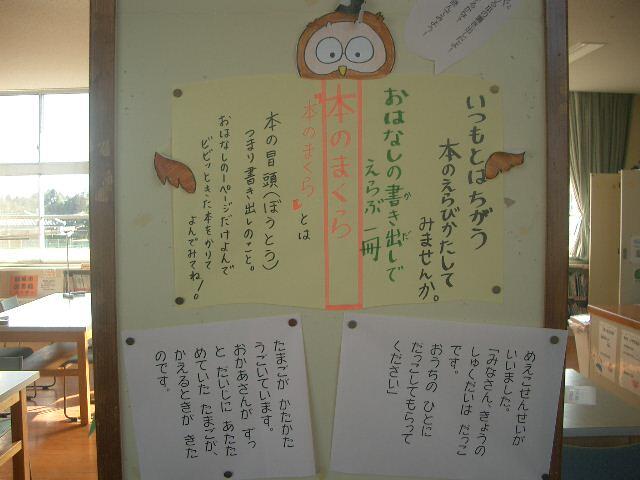 いつもとはちがう
本のえらびかたして
みませんか。
おはなしの書き出しで
えらぶ 一冊
本のまくら
『本のまくら』とは
本の冒頭(ぼうとう)
つまり書き出しのこと。
おはなしの一ページだけよんで
ビビッときた本をかりて
よんでみてね!。
めえこせんせいが
いいました。
「みなさん、きょうの
しゅくだいは だっこ
です。
おうちの ひとに
だっこしてもらって
ください」
たまごが かたかた
うごいています。
おかあさんが ずっ
と だいじに あたた
めていた たまごが、
かえるときが きた
のです。